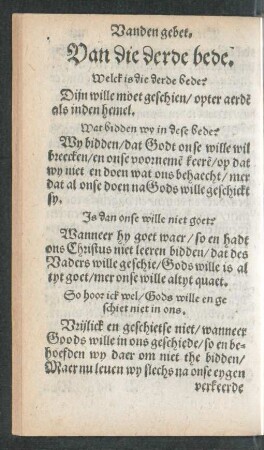 Vanden gebet.
Van die derde bede.
Welck is die derde bede?
Dijn wille moet geschien/ opter aerdē
als inden hemel.
Wat bidden wy in dese bede?
Wy bidden/ dat Godt onse wille wil
breecken/ en onse voornemē keerē/ op dat
wy niet en doen wat ons behaecht/ mer
dat al onse doen na Gods wille geschickt
sy.
Is dan onse wille niet goet?
Wanneer hy goet waer/ so en hadt
ons Christus niet leeren bidden/ dat des
Vaders wille geschie/ Gods wille is al
tyt goet/ mer onse wille altyt quaet.
So hoor ick wel/ Gods wille en ge
schiet niet in ons.
Vrijlick en geschietse niet/ wanneer
Goods wille in ons geschiede/ so en be-
hoefden wy daer om niet the bidden/
Maer nu leven wy slechs na onse eygen
verkeerde